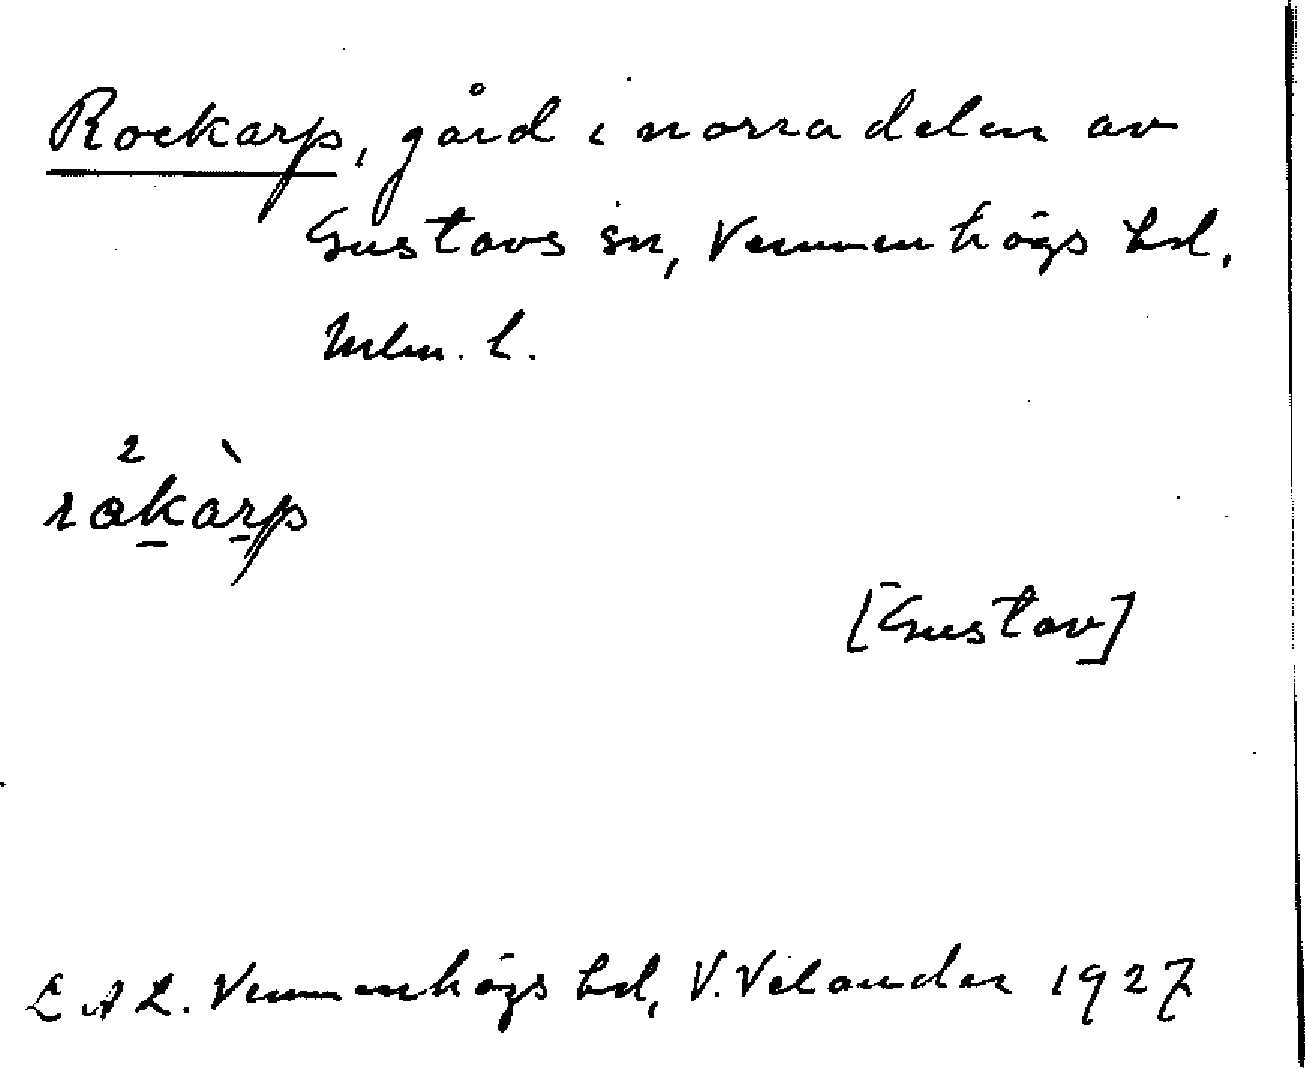 Roekarp, gård i norra delen av
Gustavs sn, Vemmenhögs hd,
Mlm. l.
råkàrp
[Gustav]
L A L. Vemmenhögs hd, V. Velander 1927